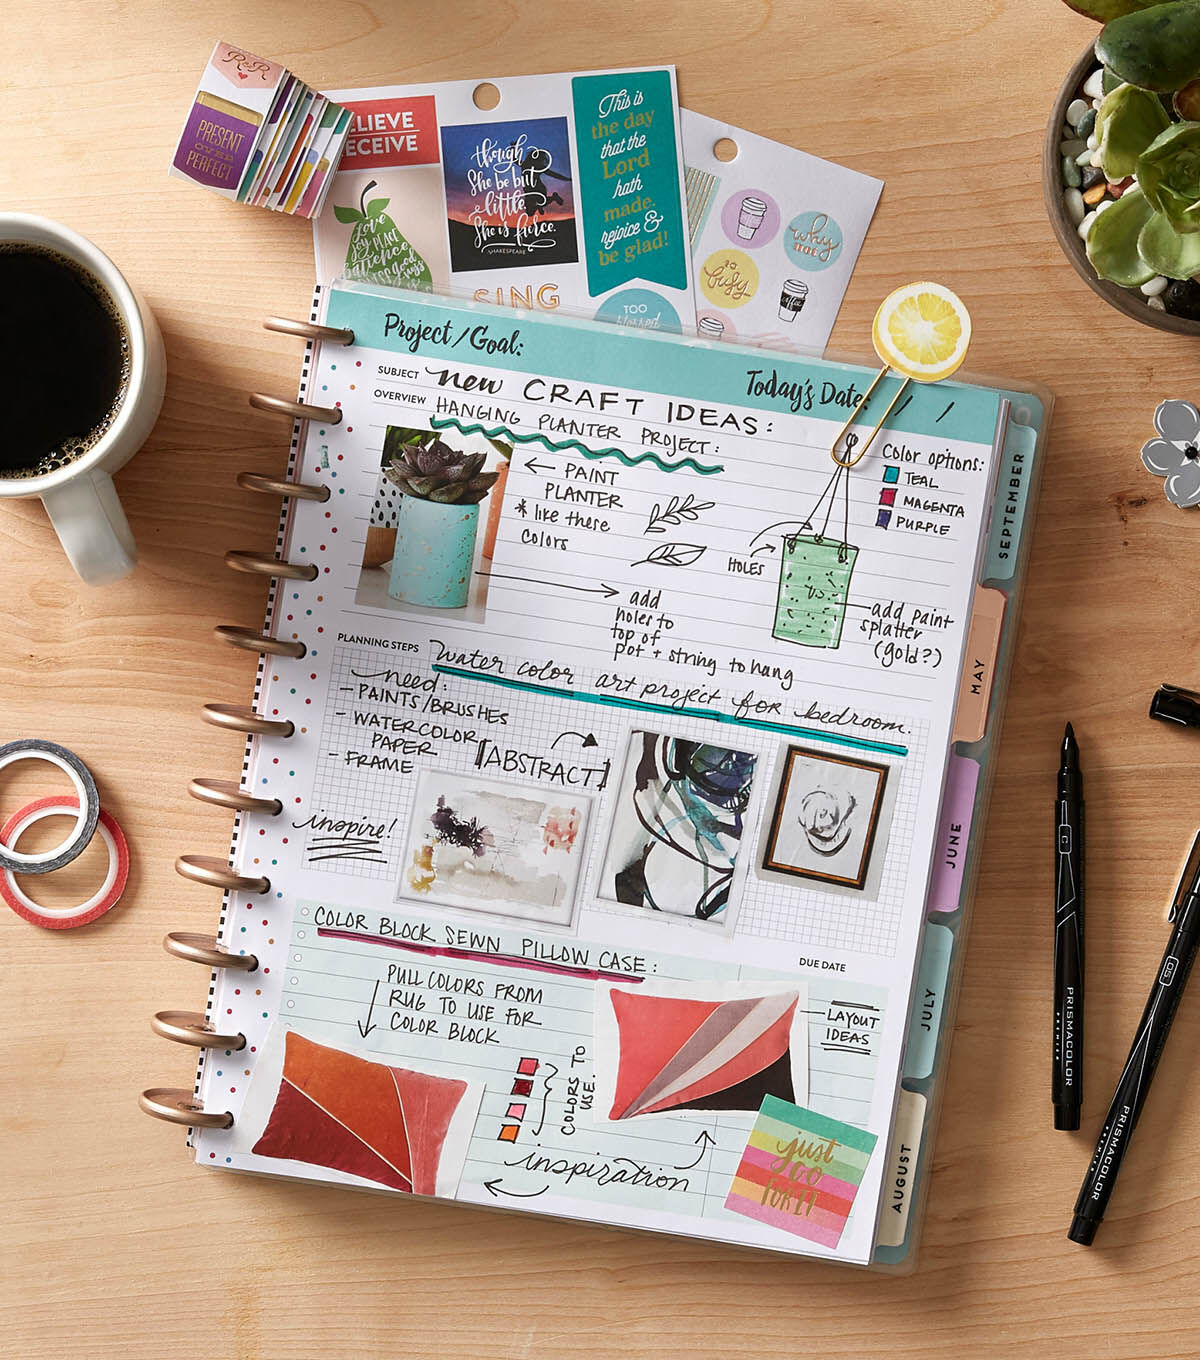 R&R
PRESENT
OVER
PERFECT
ELIEVE
ECEIVE
though
She be but
little,
She is fierce.
SHAKESPEARE
This is
the day
that the
Lord
hath
made.
rejoice &
be glad!
Love
JOY PEACE
patience
SING
TOO
blessed
why
not
so
busy
coffee
Project/Goal:
Today's Date: / /
SUBJECT new CRAFT IDEAS:
OVERVIEW HANGING PLANTER PROJECT:
← PAINT
PLANTER
* like these
colors
Color options:
TEAL
MAGENTA
PURPLE
HOLES
add
holes to
top of
pot + string to hang
add paint
splatter
(gold?)
PLANNING STEPS water color art project for bedroom.
need:
- PAINTS/BRUSHES
- WATERCOLOR
PAPER
- FRAME
[ABSTRACT]
inspire!
COLOR BLOCK SEWN PILLOW CASE:
DUE DATE
PULL COLORS FROM
RUG TO USE FOR
COLOR BLOCK
LAYOUT
IDEAS
COLORS TO
USE.
inspiration
just
GO
FOR IT
SEPTEMBER
MAY
JUNE
JULY
AUGUST
C
PRISMACOLOR
PREMIER
05
PRISMACOLOR
PREMIER